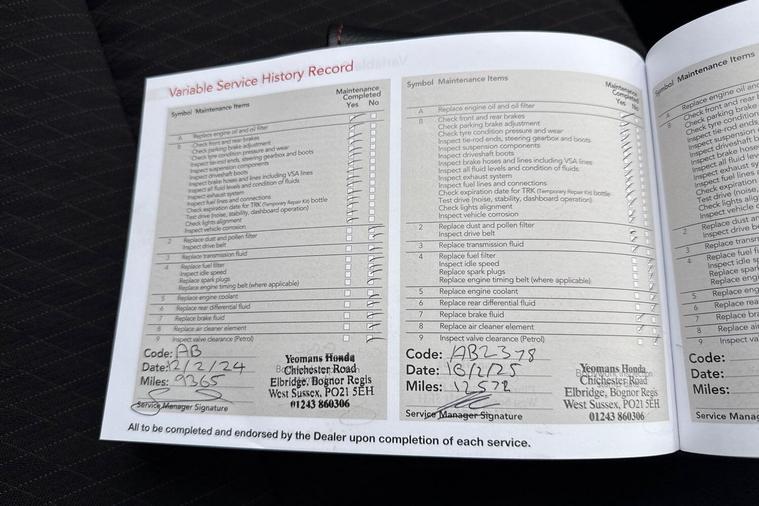 Variable Service History Record
Symbol Maintenance Items
Maintenance
Completed
Yes No
A Replace engine oil and oil filter
B Check front and rear brakes
Check parking brake adjustment
Check tyre condition pressure and wear
Inspect tie-rod ends, steering gearbox and boots
Inspect suspension components
Inspect driveshaft boots
Inspect brake hoses and lines including VSA lines
Inspect all fluid levels and condition of fluids
Inspect exhaust system
Inspect fuel lines and connections
Check expiration date for TRK (Temporary Repair Kit) bottle
Test drive (noise, stability, dashboard operation)
Check lights alignment
Inspect vehicle corrosion
2 Replace dust and pollen filter
Inspect drive belt
3 Replace transmission fluid
4 Replace fuel filter
Inspect idle speed
Replace spark plugs
Replace engine timing belt (where applicable)
5 Replace engine coolant
6 Replace rear differential fluid
7 Replace brake fluid
8 Replace air cleaner element
9 Inspect valve clearance (Petrol)
Code: AB
Date: 12/2/24
Miles: 9365
Service Manager Signature
Yeomans Honda
Chichester Road
Elbridge, Bognor Regis
West Sussex, PO21 5EH
01243 860306
Symbol Maintenance Items
Maintenance
Completed
Yes No
A Replace engine oil and oil filter
B Check front and rear brakes
Check parking brake adjustment
Check tyre condition pressure and wear
Inspect tie-rod ends, steering gearbox and boots
Inspect suspension components
Inspect driveshaft boots
Inspect brake hoses and lines including VSA lines
Inspect all fluid levels and condition of fluids
Inspect exhaust system
Inspect fuel lines and connections
Check expiration date for TRK (Temporary Repair Kit) bottle
Test drive (noise, stability, dashboard operation)
Check lights alignment
Inspect vehicle corrosion
2 Replace dust and pollen filter
Inspect drive belt
3 Replace transmission fluid
4 Replace fuel filter
Inspect idle speed
Replace spark plugs
Replace engine timing belt (where applicable)
5 Replace engine coolant
6 Replace rear differential fluid
7 Replace brake fluid
8 Replace air cleaner element
9 Inspect valve clearance (Petrol)
Code: AB2378
Date: 18/2/25
Miles: 12572
Service Manager Signature
Yeomans Honda
Chichester Road
Elbridge, Bognor Regis
West Sussex, PO21 5EH
01243 860306
All to be completed and endorsed by the Dealer upon completion of each service.
Symbol Maintenance Items
A Replace engine oil and
Check front and rear
Check parking brake
Check tyre condition
Inspect tie-rod ends,
Inspect suspension
Inspect driveshaft b
Inspect brake hose
Inspect all fluid lev
Inspect exhaust sy
Inspect fuel lines
Check expiration
Test drive (noise,
Check lights alig
Inspect vehicle c
2 Replace dust a
Inspect drive b
3 Replace transm
4 Replace fuel f
Inspect idle s
Replace spar
Replace eng
5 Replace eng
6 Replace rea
7 Replace bra
8 Replace air
9 Inspect va
Code:
Date:
Miles:
Service Manag